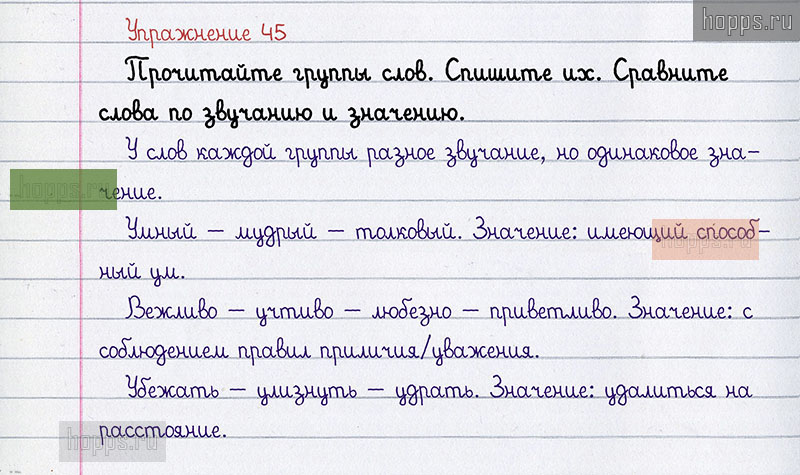 hopps.ru
Упражнение 45
Прочитайте группы слов. Спишите их. Сравните
слова по звучанию и значению.
У слов каждой группы разное звучание, но одинаковое зна-
hopps.ru
чение.
Умный – мудрый – толковый. Значение: имеющий способ-
hopps.ru
ный ум.
Вежливо – учтиво – любезно – приветливо. Значение: с
соблюдением правил приличия/уважения.
Убежать – улизнуть – удрать. Значение: удалиться на
расстояние.
hopps.ru